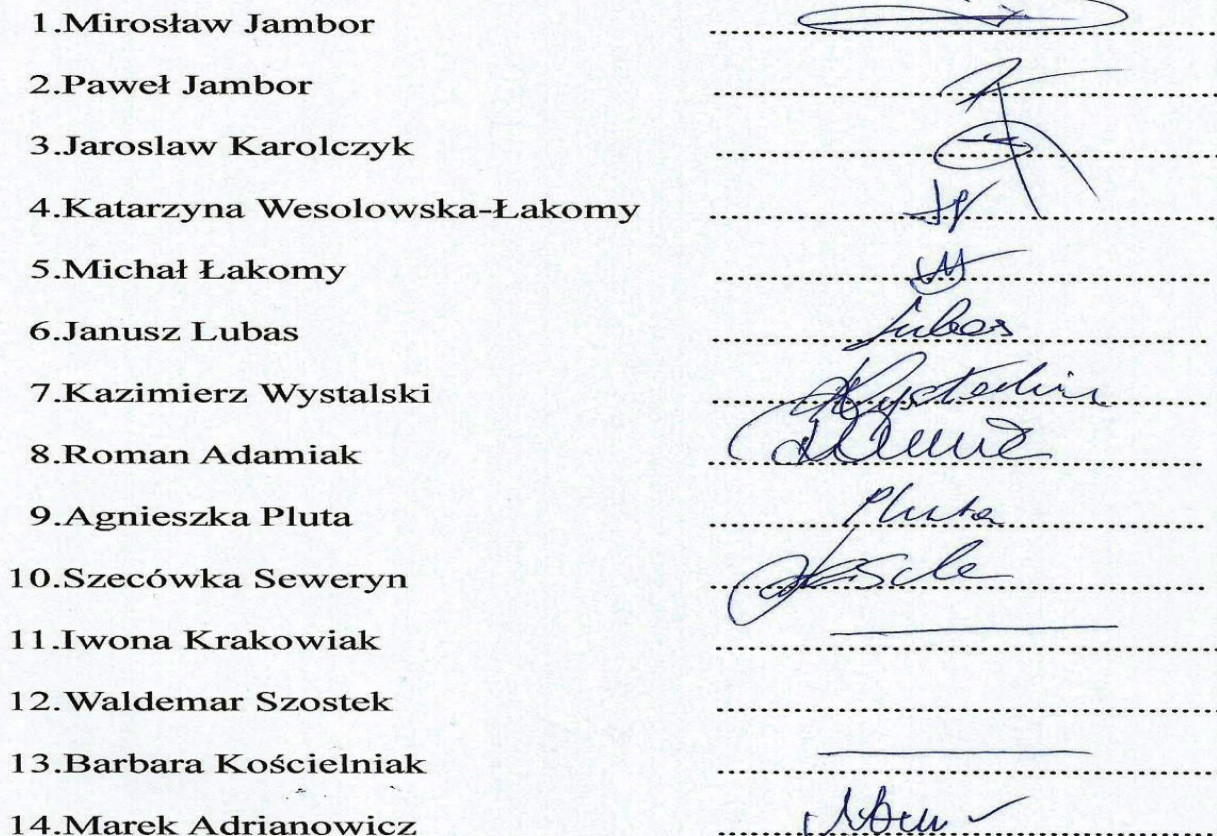 1.Mirosław Jambor
2.Paweł Jambor
3.Jaroslaw Karolczyk
4.Katarzyna Wesolowska-Łakomy
5.Michał Łakomy
6.Janusz Lubas Lubas
7.Kazimierz Wystalski
8.Roman Adamiak
9.Agnieszka Pluta Pluta
10.Szecówka Seweryn
11.Iwona Krakowiak
12.Waldemar Szostek
13.Barbara Kościelniak
14.Marek Adrianowicz